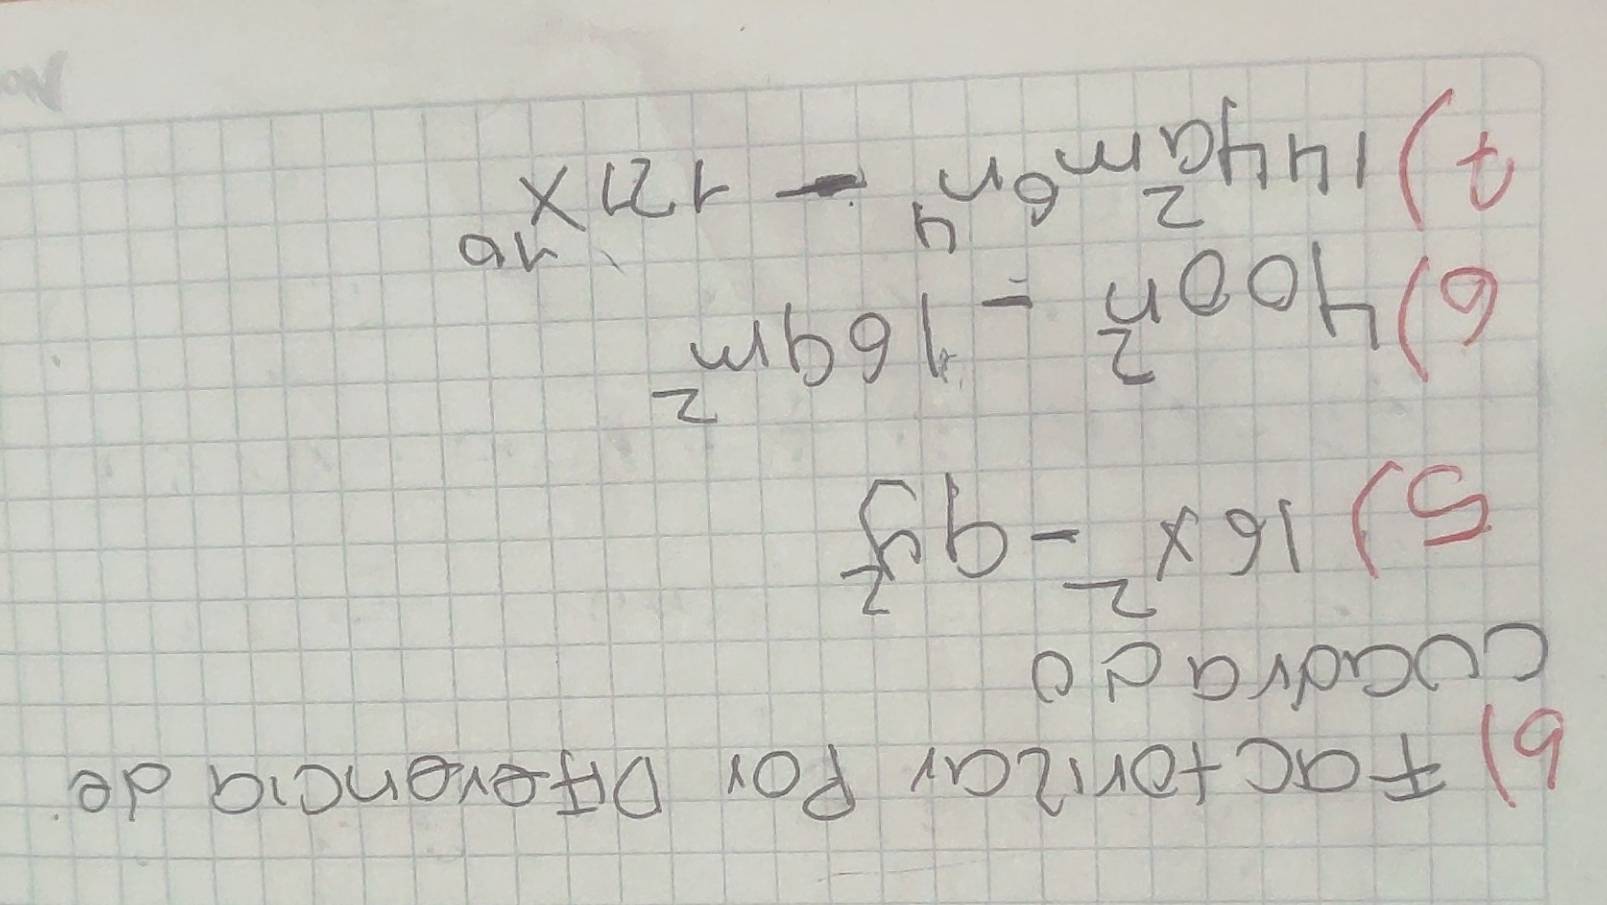 b) Factorizar Por Diferencia de
cuadrado
5) 16x² - 9y²
6) 400n² - 169m²
7) 144a²m⁶n⁴ - 121x¹⁰